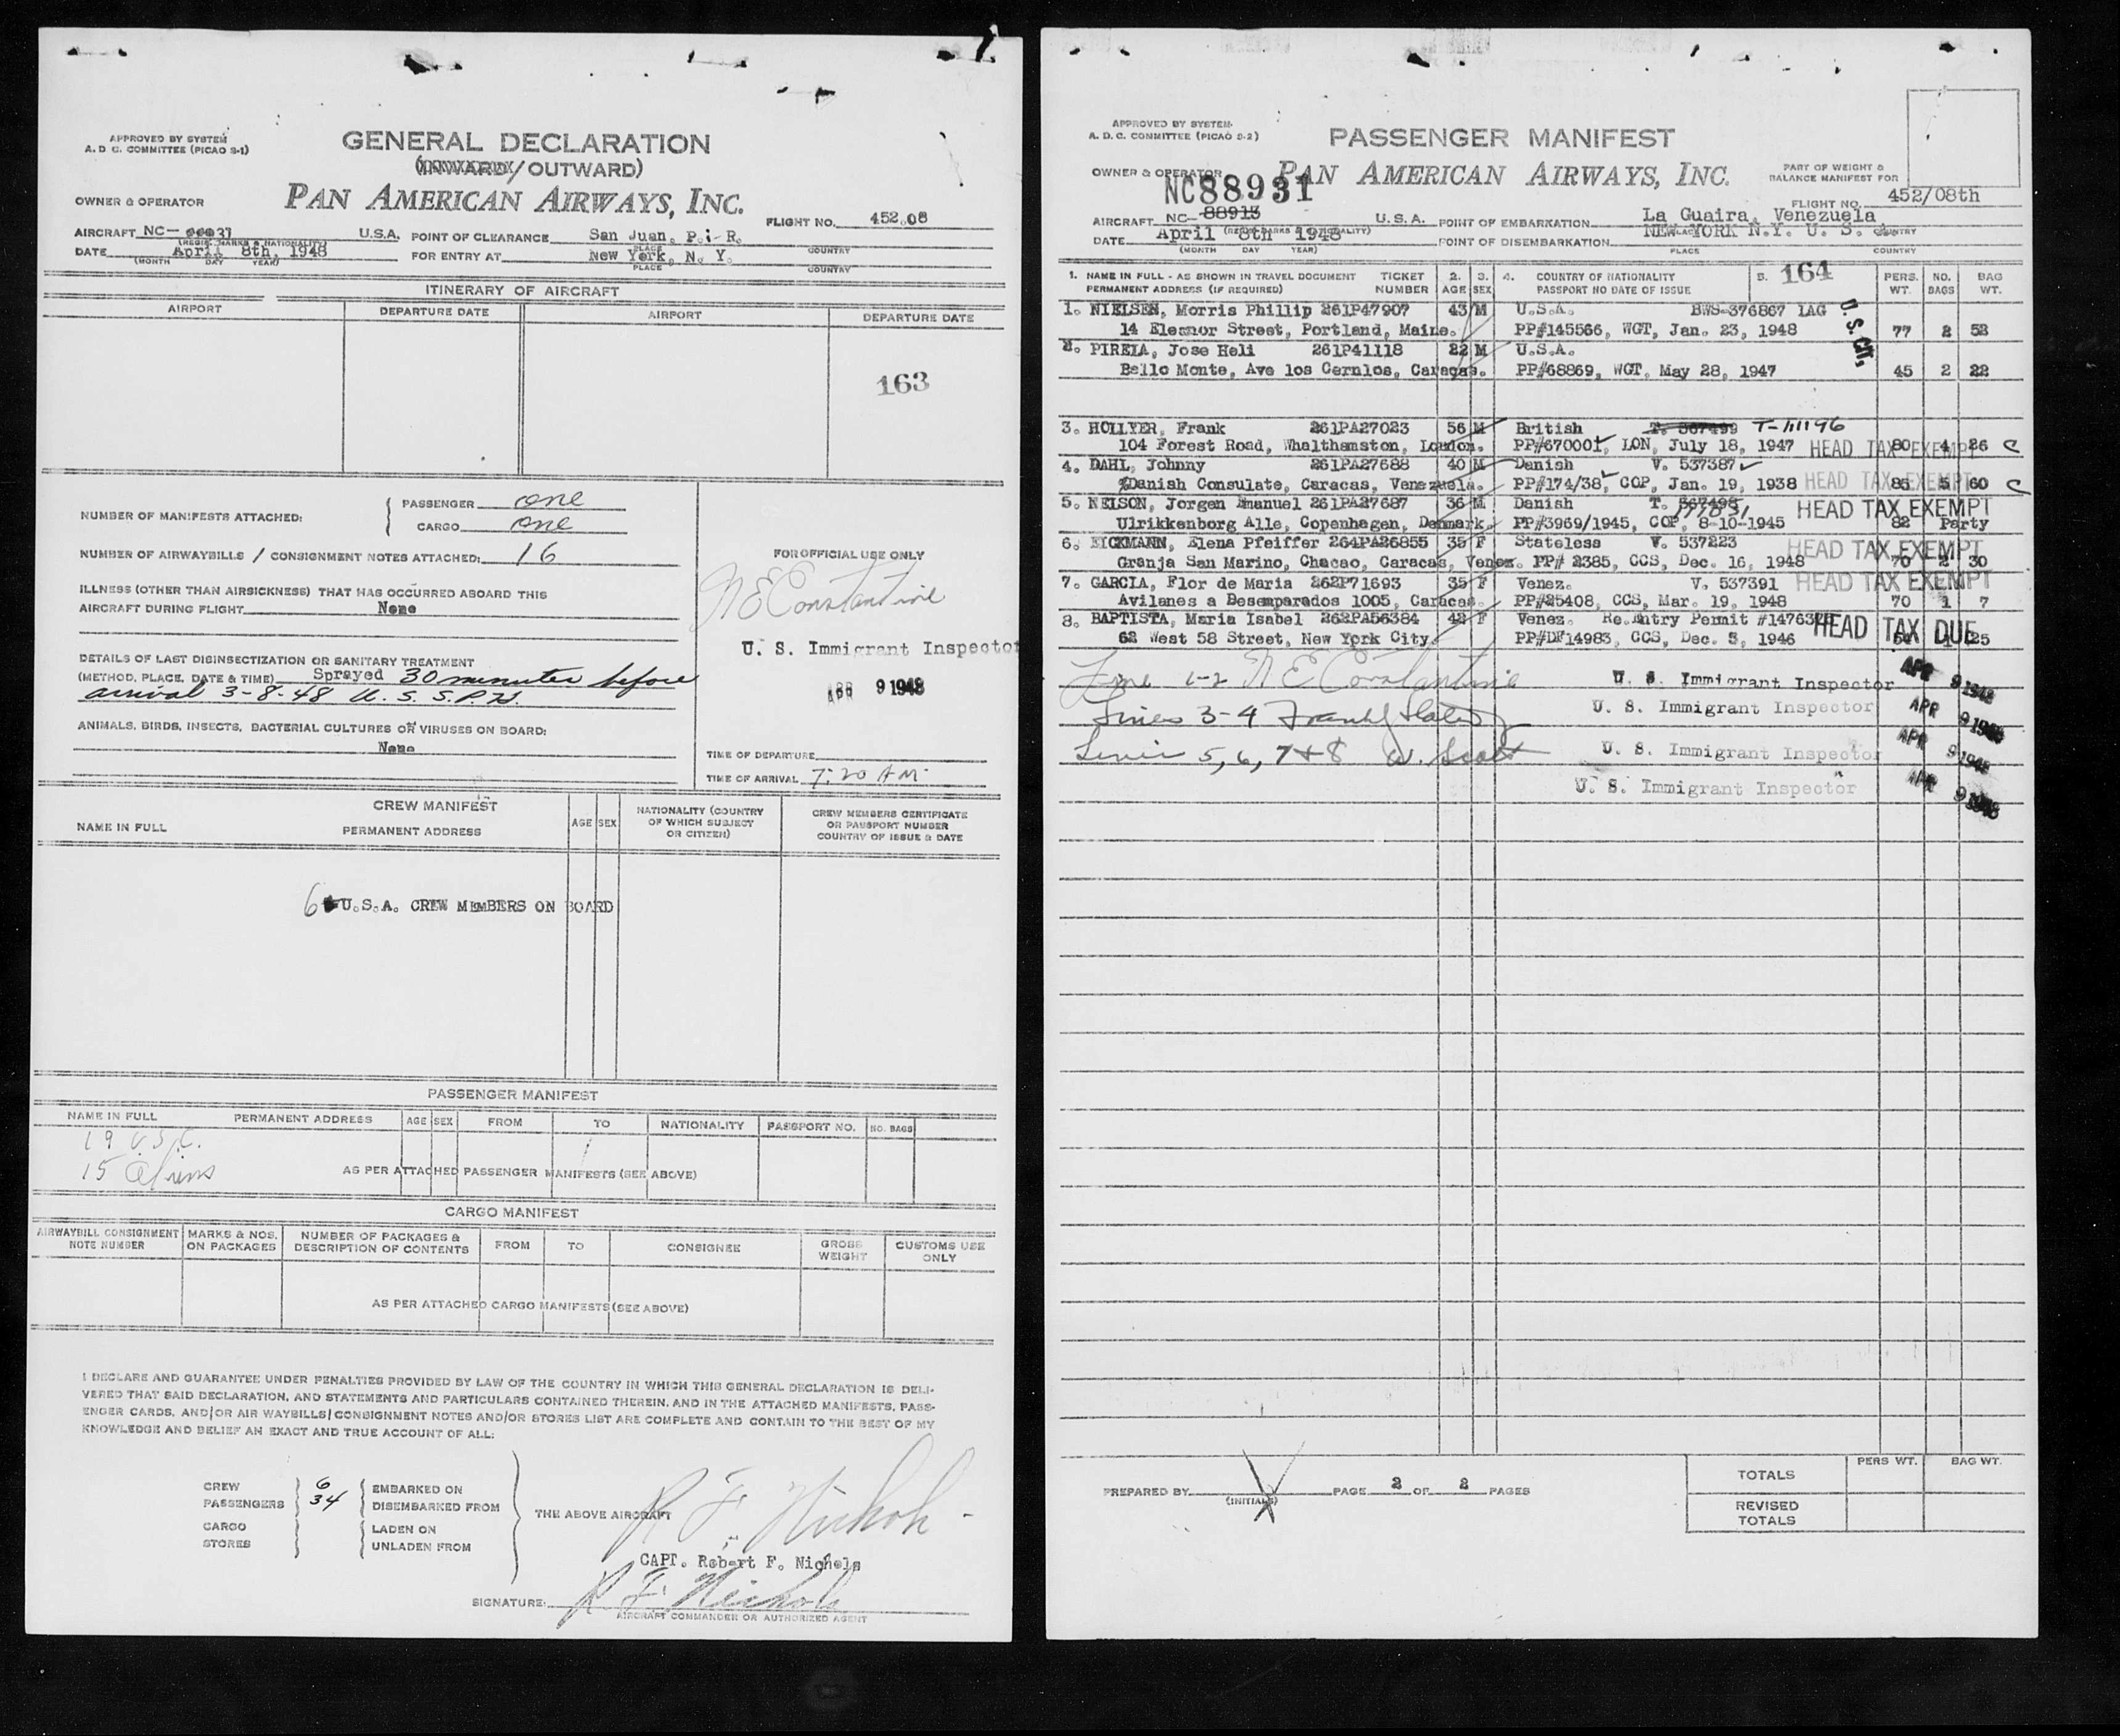 APPROVED BY SYSTEM
A. D. C. COMMITTEE (PICAO S-1)
GENERAL DECLARATION
(INWARD/OUTWARD)
OWNER & OPERATOR
PAN AMERICAN AIRWAYS, INC.
FLIGHT NO. 452.08
AIRCRAFT NC- U.S.A. POINT OF CLEARANCE San Juan, P. R.
(REGIS. MARKS & NATIONALITY) PLACE COUNTRY
DATE April 8th, 1948 FOR ENTRY AT New York, N. Y.
(MONTH DAY YEAR) PLACE COUNTRY
ITINERARY OF AIRCRAFT
AIRPORT DEPARTURE DATE AIRPORT DEPARTURE DATE
163
NUMBER OF MANIFESTS ATTACHED:
PASSENGER one
CARGO one
NUMBER OF AIRWAYBILLS / CONSIGNMENT NOTES ATTACHED: 16
FOR OFFICIAL USE ONLY
ILLNESS (OTHER THAN AIRSICKNESS) THAT HAS OCCURRED ABOARD THIS
AIRCRAFT DURING FLIGHT None
N E Constantine
U. S. Immigrant Inspector
DETAILS OF LAST DISINSECTIZATION OR SANITARY TREATMENT
(METHOD, PLACE, DATE & TIME) Sprayed 30 minutes before
arrival 3-8-48 U. S. S. P. H.
APR 9 1948
ANIMALS, BIRDS, INSECTS, BACTERIAL CULTURES OR VIRUSES ON BOARD:
None
TIME OF DEPARTURE
TIME OF ARRIVAL 7:20 AM
CREW MANIFEST
NAME IN FULL PERMANENT ADDRESS AGE SEX NATIONALITY (COUNTRY OF WHICH SUBJECT OR CITIZEN) CREW MEMBERS CERTIFICATE OR PASSPORT NUMBER COUNTRY OF ISSUE & DATE
6 U.S.A. CREW MEMBERS ON BOARD
PASSENGER MANIFEST
NAME IN FULL PERMANENT ADDRESS AGE SEX FROM TO NATIONALITY PASSPORT NO. NO. BAGS
19 U.S.C.
15 Aliens AS PER ATTACHED PASSENGER MANIFESTS (SEE ABOVE)
CARGO MANIFEST
AIRWAYBILL CONSIGNMENT NOTE NUMBER MARKS & NOS. ON PACKAGES NUMBER OF PACKAGES & DESCRIPTION OF CONTENTS FROM TO CONSIGNEE GROSS WEIGHT CUSTOMS USE ONLY
AS PER ATTACHED CARGO MANIFESTS (SEE ABOVE)
I DECLARE AND GUARANTEE UNDER PENALTIES PROVIDED BY LAW OF THE COUNTRY IN WHICH THIS GENERAL DECLARATION IS DELI-
VERED THAT SAID DECLARATION, AND STATEMENTS AND PARTICULARS CONTAINED THEREIN, AND IN THE ATTACHED MANIFESTS, PASS-
ENGER CARDS, AND/OR AIR WAYBILLS/CONSIGNMENT NOTES AND/OR STORES LIST ARE COMPLETE AND CONTAIN TO THE BEST OF MY
KNOWLEDGE AND BELIEF AN EXACT AND TRUE ACCOUNT OF ALL:
CREW 6 EMBARKED ON
PASSENGERS 34 DISEMBARKED FROM
THE ABOVE AIRCRAFT
CARGO LADEN ON
STORES UNLADEN FROM
R F Nichols
CAPT. Robert F. Nichols
SIGNATURE: R F Nichols
AIRCRAFT COMMANDER OR AUTHORIZED AGENT
APPROVED BY SYSTEM
A. D. C. COMMITTEE (PICAO S-2)
PASSENGER MANIFEST
OWNER & OPERATOR PAN AMERICAN AIRWAYS, INC.
PART OF WEIGHT & BALANCE MANIFEST FOR
FLIGHT NO. 452/08th
NC88931
AIRCRAFT NC-88913 U.S.A. POINT OF EMBARKATION La Guaira, Venezuela
DATE April 8th 1948 POINT OF DISEMBARKATION NEW YORK N.Y. U. S. A.
(MONTH DAY YEAR) PLACE COUNTRY
1. NAME IN FULL - AS SHOWN IN TRAVEL DOCUMENT TICKET 2. 3. 4. COUNTRY OF NATIONALITY 5. 164 PERS. NO. BAG
PERMANENT ADDRESS (IF REQUIRED) NUMBER AGE SEX PASSPORT NO DATE OF ISSUE WT. BAGS WT.
1. NIELSEN, Morris Phillip 261P47907 43 M U.S.A. BWS-376867 LAG
14 Eleanor Street, Portland, Maine. PP#145566, WGT, Jan. 23, 1948 77 2 52
U. S. CIT.
2. PIREIA, Jose Heli 261P41118 22 M U.S.A.
Bello Monte, Ave los Cernlos, Caracas. PP#68869, WGT, May 28, 1947 45 2 22
3. HOLLYER, Frank 261PA27023 56 M British T. 567499 T-111196
104 Forest Road, Whalthamston, London. PP#67000, LON, July 18, 1947 HEAD TAX EXEMPT 80 4 26 C
4. DAHL, Johnny 261PA27688 40 M Danish V. 537387
%Danish Consulate, Caracas, Venezuela. PP#174/38, COP, Jan. 19, 1938 HEAD TAX EXEMPT 86 5 60 C
5. NELSON, Jorgen Emanuel 261PA27687 36 M Danish T. 567498
Ulrikkenborg Alle, Copenhagen, Denmark. PP#3969/1945, COP, 8-10-1945 HEAD TAX EXEMPT 82 Party
6. EICKMANN, Elena Pfeiffer 264PA26855 35 F Stateless V. 537223
Granja San Marino, Chacao, Caracas, Venez. PP# 2385, CCS, Dec. 16, 1948 HEAD TAX EXEMPT 70 2 30
7. GARCIA, Flor de Maria 262P71693 35 F Venez. V. 537391
Avilanes a Desemparados 1005, Caracas. PP#25408, CCS, Mar. 19, 1948 HEAD TAX EXEMPT 70 1 7
8. BAPTISTA, Maria Isabel 262PA56384 42 F Venez. Re.Entry Permit
62 West 58 Street, New York City. PP#DF14983, CCS, Dec. 3, 1946 HEAD TAX DUE 25
Line 1-2 N E Constantine U. S. Immigrant Inspector APR 9 1948
Lines 3-4 U. S. Immigrant Inspector APR 9 1948
Lines 5, 6, 7 & 8 W. Scott U. S. Immigrant Inspector APR 9 1948
U. S. Immigrant Inspector APR 9 1948
PREPARED BY (INITIALS) PAGE 2 OF 2 PAGES
PERS WT. BAG WT.
TOTALS
REVISED TOTALS